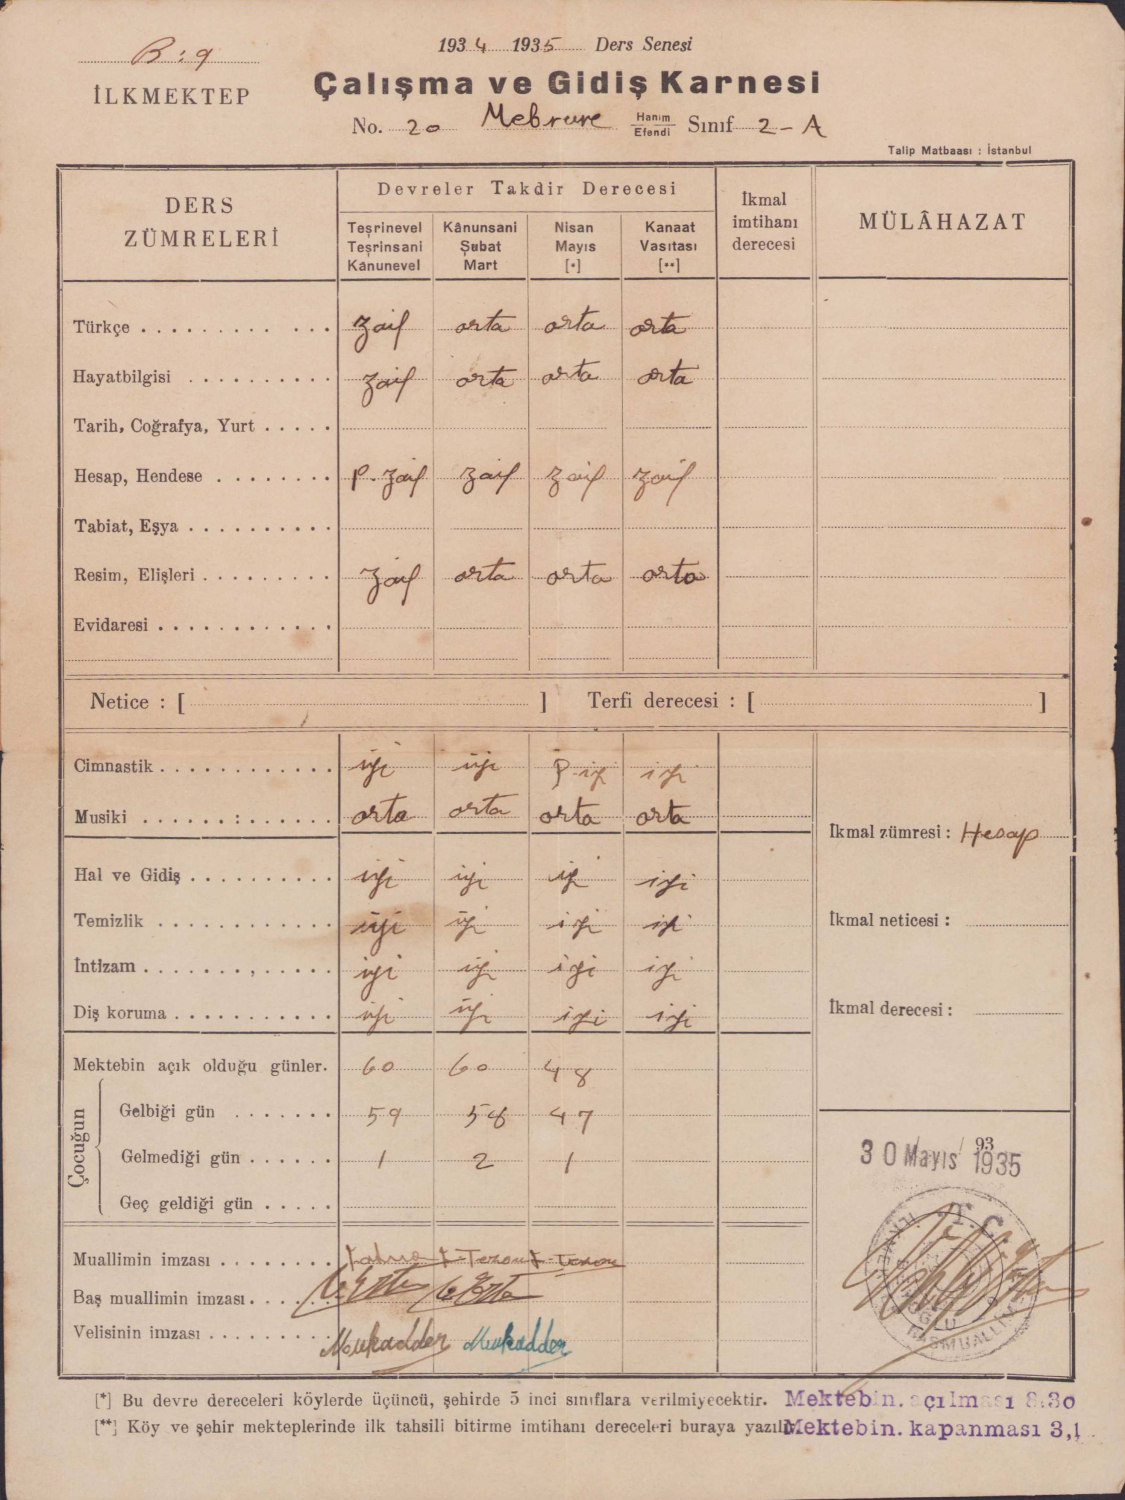 B : 9
İLKMEKTEP
1934 1935 Ders Senesi
Çalışma ve Gidiş Karnesi
No. 20 Mebrure Hanım Efendi Sınıf 2-A
Talip Matbaası : İstanbul
DERS ZÜMRELERİ
Devreler Takdir Derecesi
Teşrinevel Teşrinsani Kânunevel
Kânunsani Şubat Mart
Nisan Mayıs [*]
Kanaat Vasıtası [**]
İkmal imtihanı derecesi
MÜLÂHAZAT
Türkçe zaif orta orta orta
Hayatbilgisi zaif orta orta orta
Tarih, Coğrafya, Yurt
Hesap, Hendese P. zaif zaif zaif zaif
Tabiat, Eşya
Resim, Elişleri zaif orta orta orta
Evidaresi
Netice : [ ] Terfi derecesi : [ ]
Cimnastik iyi iyi P. iyi iyi
Musiki orta orta orta orta
İkmal zümresi : Hesap
Hal ve Gidiş iyi iyi iyi iyi
Temizlik iyi iyi iyi iyi
İkmal neticesi :
İntizam iyi iyi iyi iyi
Diş koruma iyi iyi iyi iyi
İkmal derecesi :
Mektebin açık olduğu günler. 60 60 48
Çocuğun
Gelbiği gün 59 58 47
Gelmediği gün 1 2 1
Geç geldiği gün
30 Mayıs 1935
T.C.
Muallimin imzası
Baş muallimin imzası
Velisinin imzası Mukadder Mukadder
BAŞMUALLİM
[*] Bu devre dereceleri köylerde üçüncü, şehirde 5 inci sınıflara verilmiyecektir.
Mektebin. açılması 8.30
[**] Köy ve şehir mekteplerinde ilk tahsili bitirme imtihanı dereceleri buraya yazılır.
Mektebin. kapanması 3,1